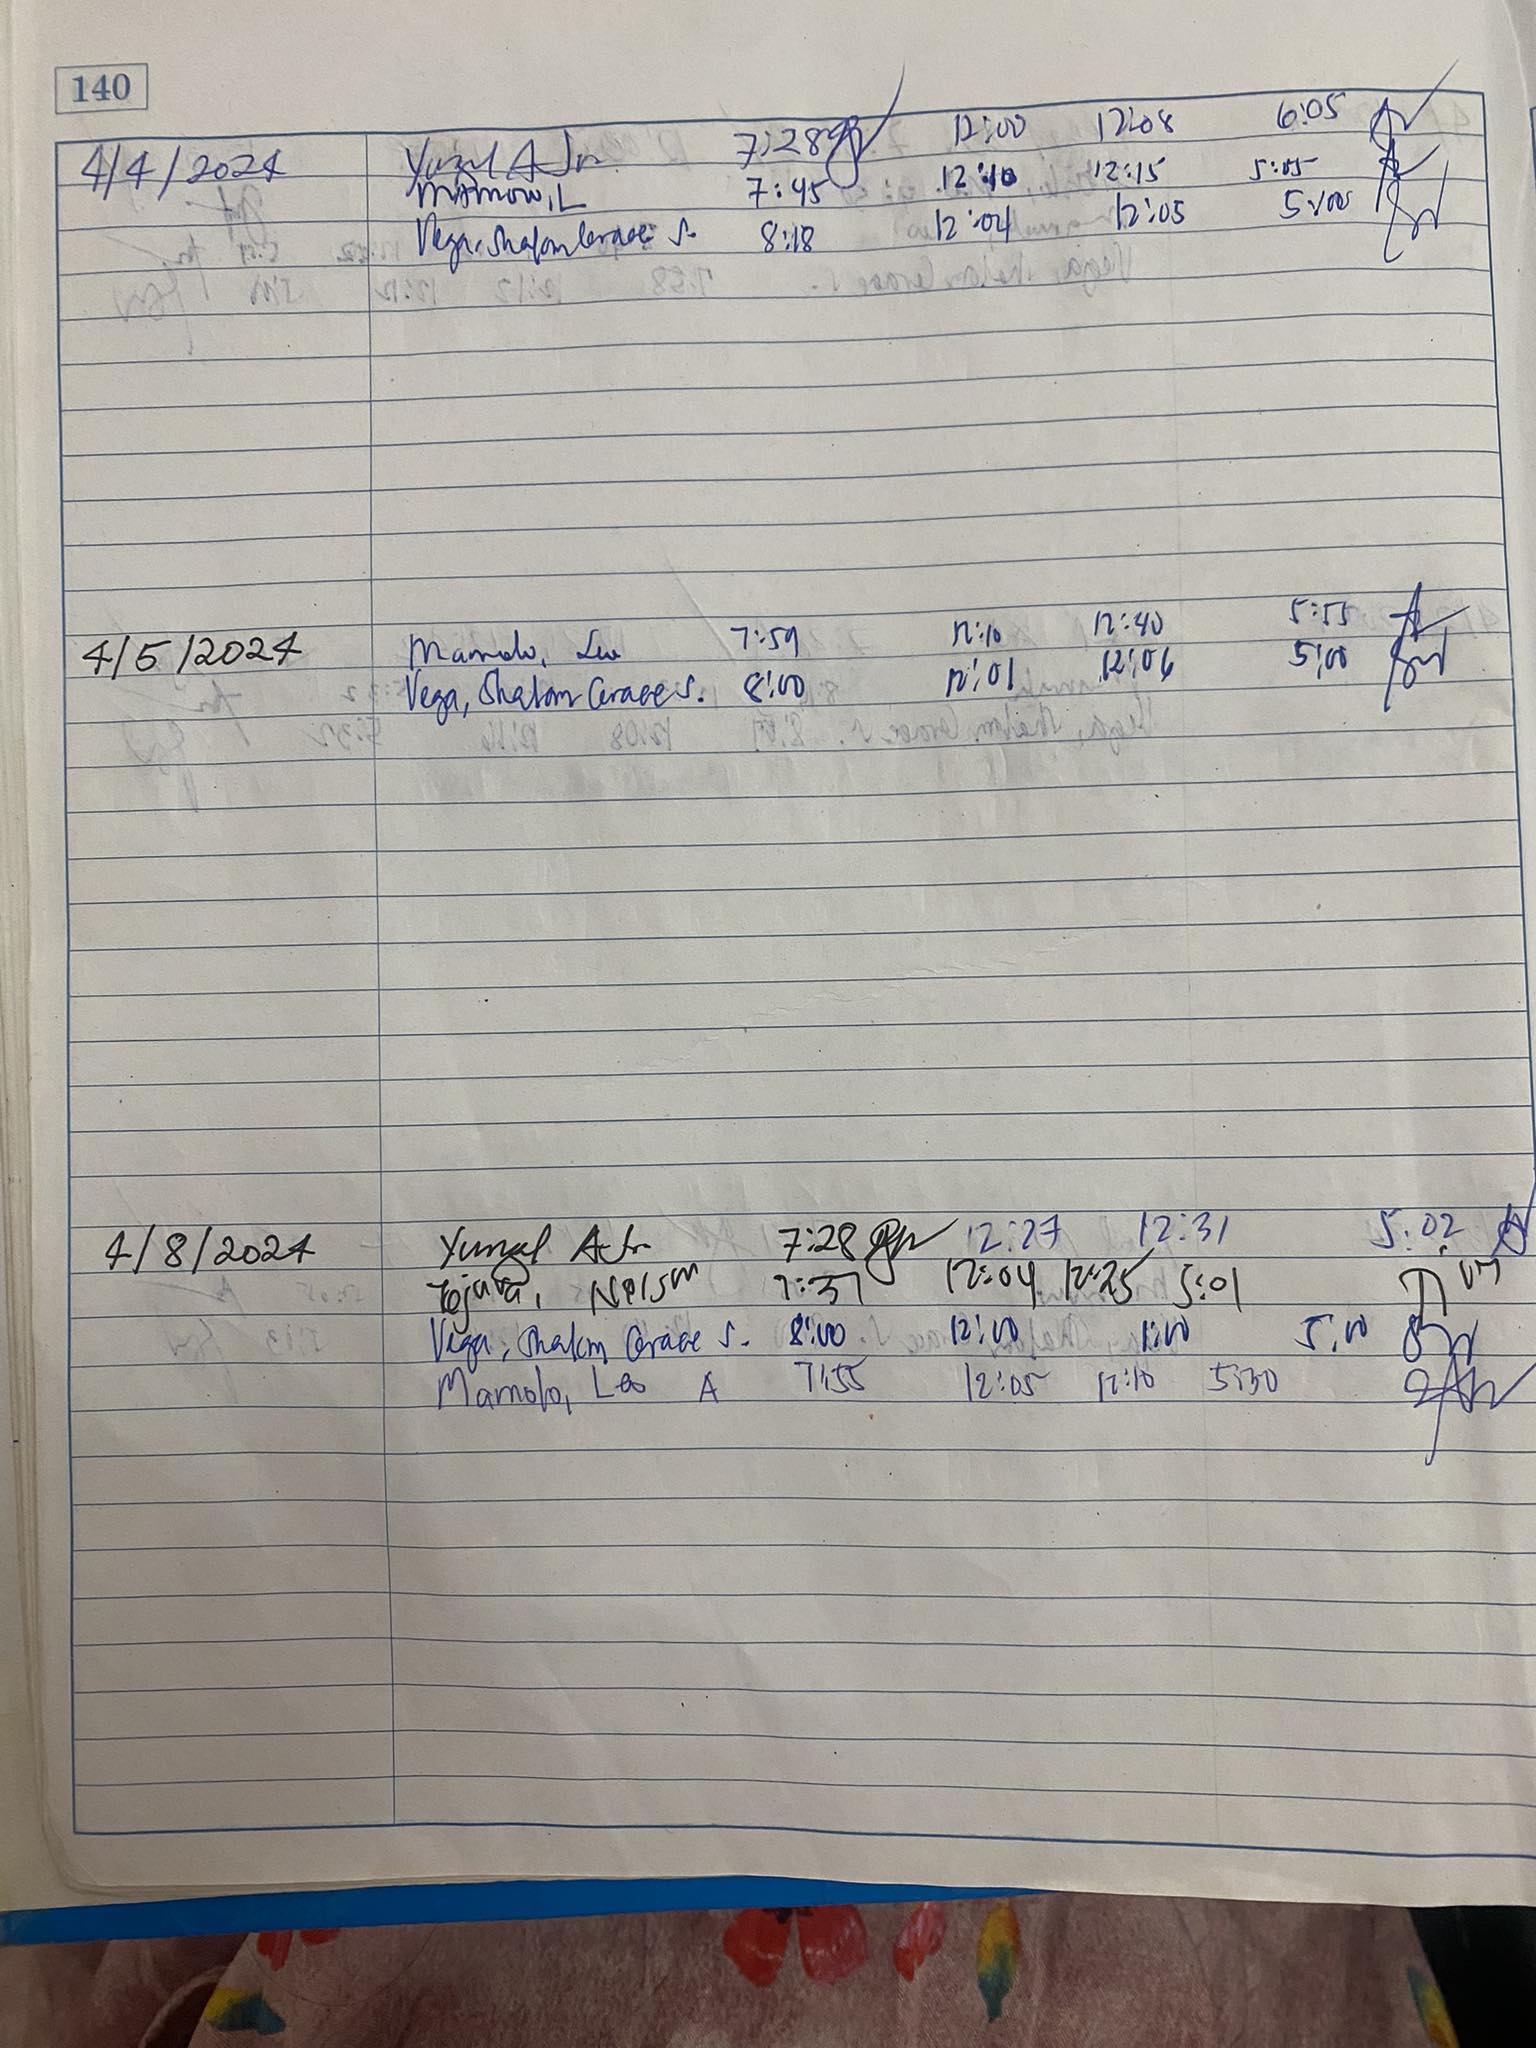 140
4/4/2024 Yungl A Jr. 7:28 12:00 12:08 6:05
Mamolo, L 7:45 12:10 12:15 5:05
Vega, Shalom Cerace S. 8:18 12:04 12:05 5:00
4/5/2024 Mamolo, Leo 7:59 12:10 12:40 5:55
Vega, Shalom Cerace S. 8:00 12:01 12:06 5:00
4/8/2024 A Jr 7:28 12:27 12:31 5:02
Nelson 7:37 12:04 12:25 5:01
Vega, Shalom Cerace S. 8:00 12:00 1:00 5:00
Mamolo, Leo A 7:55 12:05 12:10 5:30